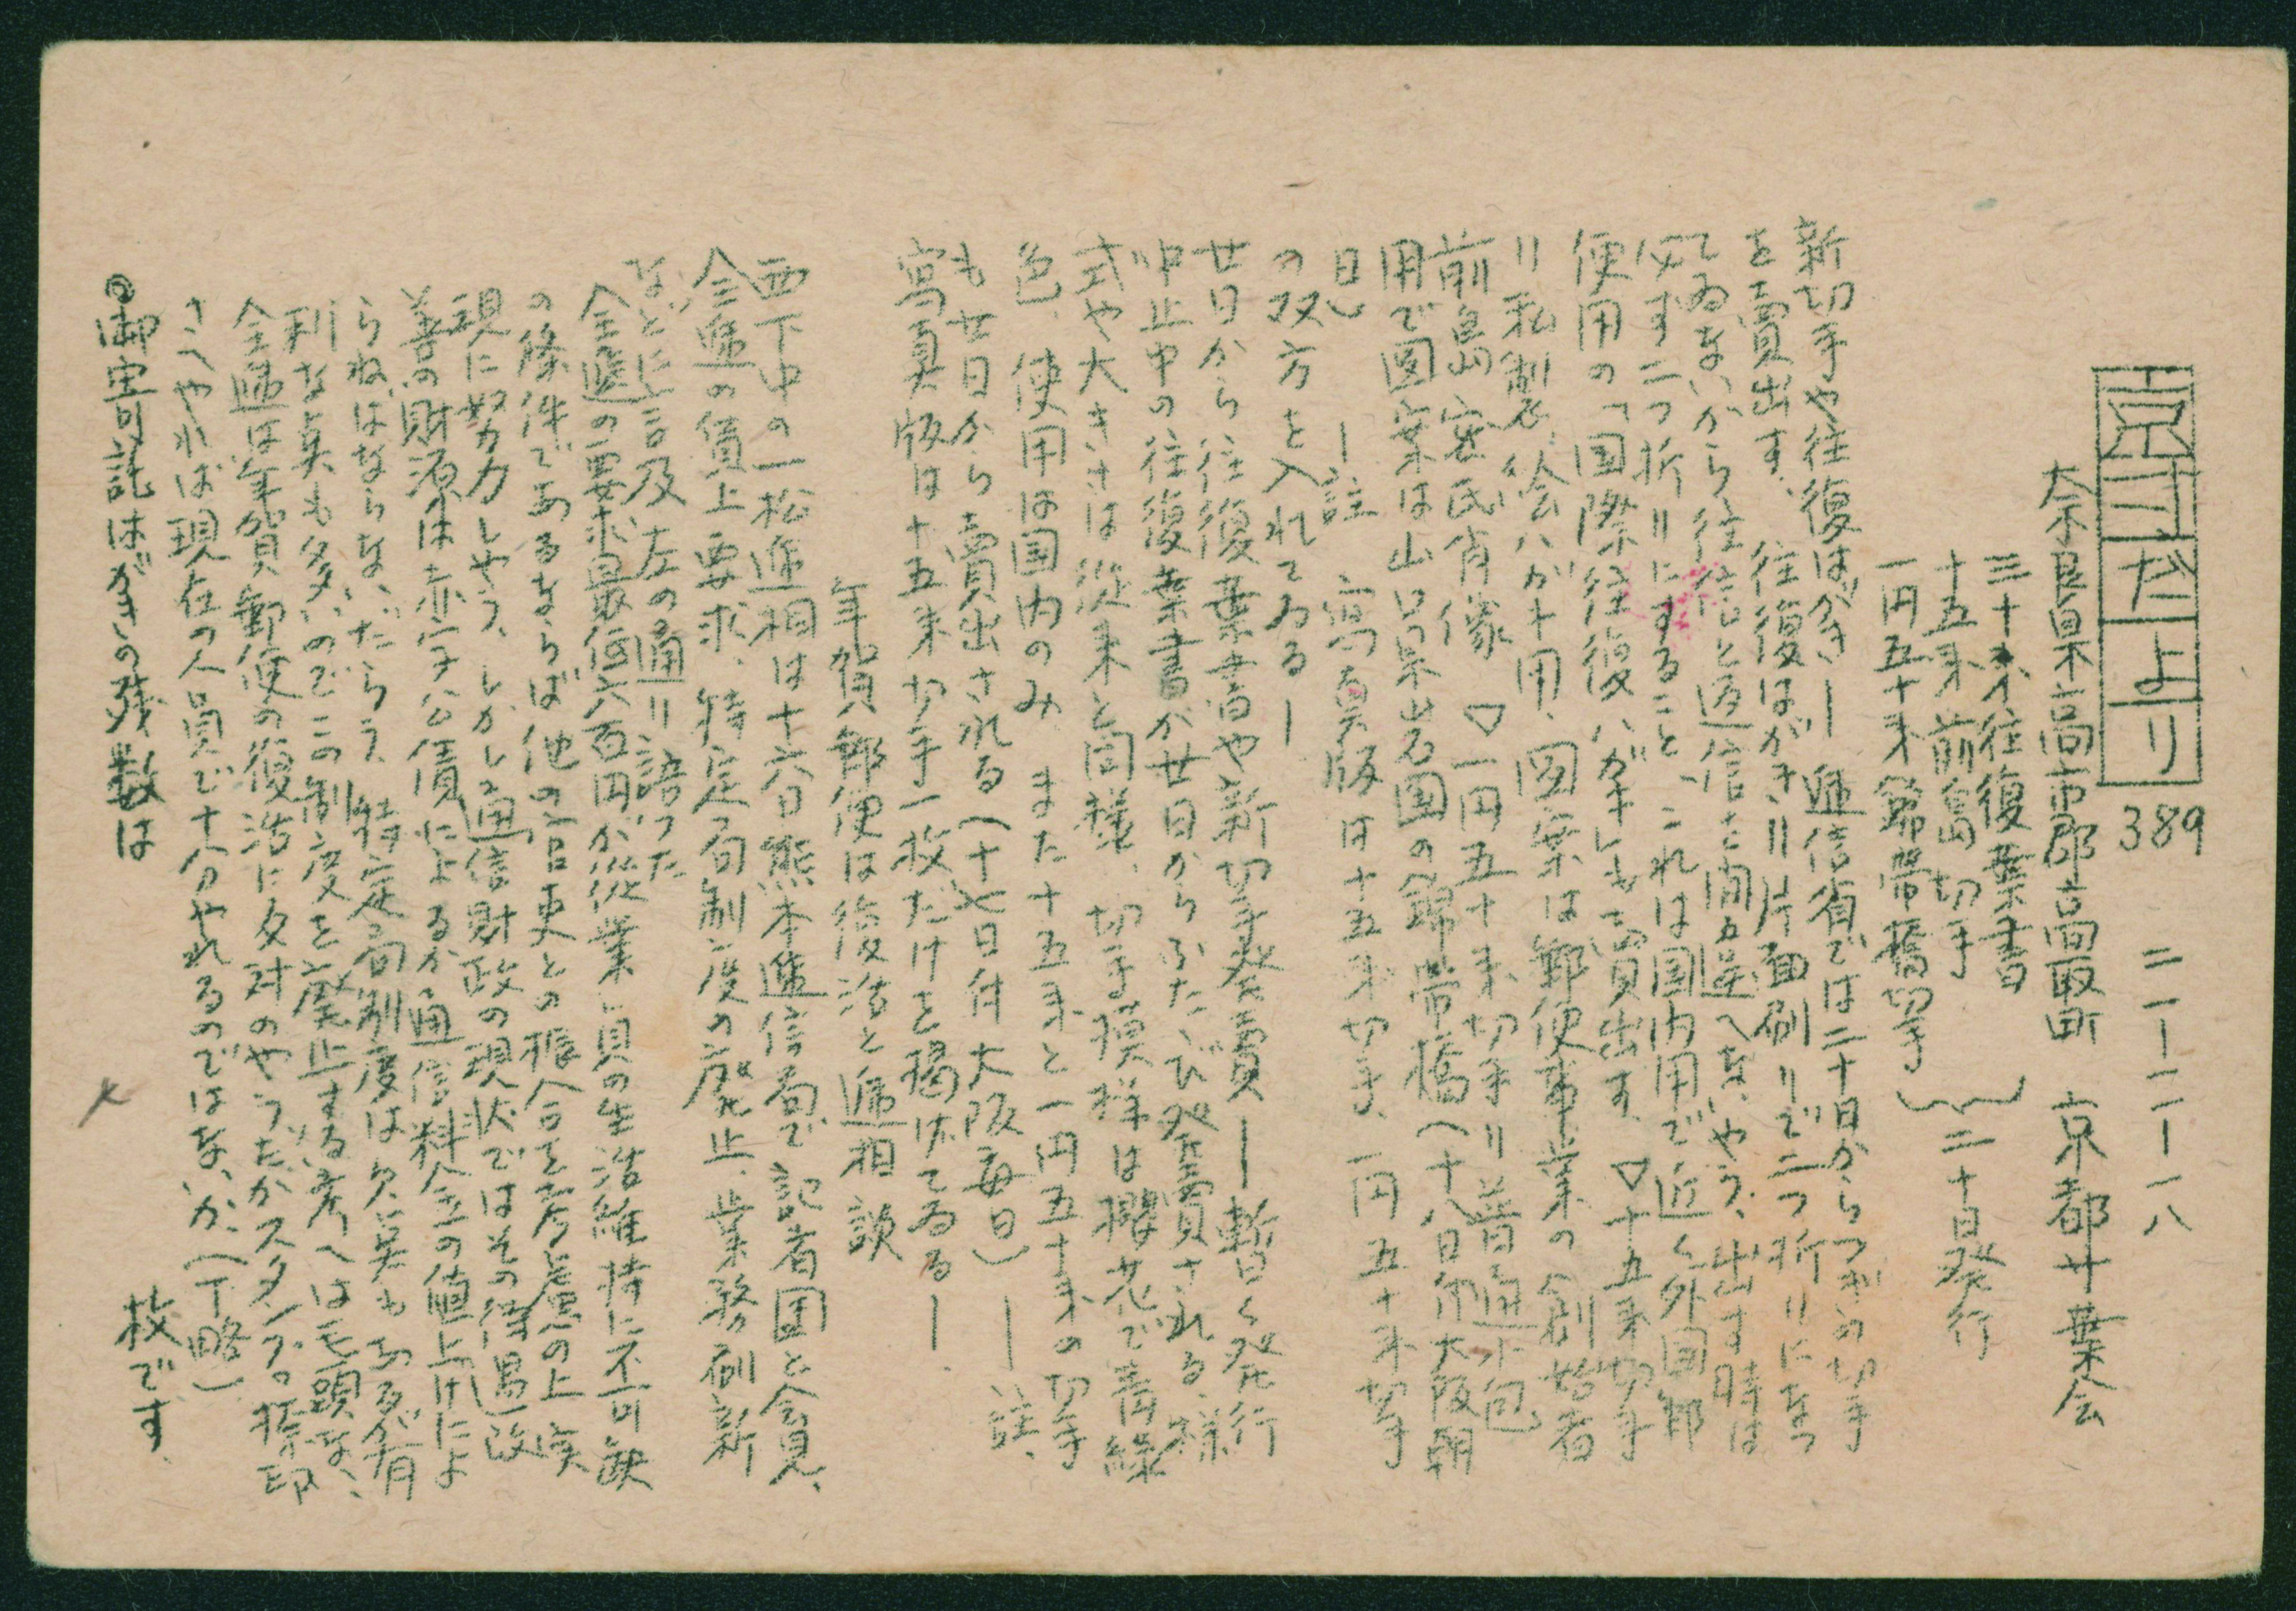 京三だより 389 二一ー一二ー一八
奈良県高市郡高取町 京都廿葉会
三十才往復葉書
十五才前島切手
一円五十才錦帯橋切手
二十日発行
新切手や往復はがきー逓信省では二十日からつぎの切手
を賣出す、往復はがき＝片面刷りで二つ折りになつ
てゐないから往信と返信を間違へないやう、出す時は
必ず二つ折りにすること、これは国内用で近く外国郵
便用の「国際往復ハガキ」も賣出す、▽十五才切手
＝私製絵ハガキ用、図案は郵便事業の創始者
前島密氏肖像 ▽一円五十才切手＝普通小包
用で図案は山口県岩国の錦帯橋（十八日附大阪朝
日）ー註 寫真版は十五才切手、一円五十才切手
の双方を入れてゐるー
廿日から往復葉書や新切手発賣ー暫く発行
中止中の往復葉書が廿日からふたたび発賣される、様
式や大きさは従来と同様、切手模様は櫻花で青緑
色、使用は国内のみ また十五才と一円五十才の切手
も廿日から賣出される（十七日付大阪毎日）ー註、
寫真版は十五才切手一枚だけを掲げてゐるー
年賀郵便は復活と逓相談
西下中の一松逓相は十六日熊本逓信局で記者団と会見、
全逓の賃上要求、特定局制度の廃止、業務刷新
などに言及左の通り語つた
全逓の要求最低六百円が従業員の生活維持に不可缺
の條件であるならば他の官吏との振合を考慮の上実
現に努力しやう、しかし通信財政の現状ではその待遇改
善の財源は赤字公債によるか通信料金の値上げによ
らねばならないだらう、特定局制度は欠点もあるが有
利な点も多いのでこの制度を廃止する考へは毛頭ない、
全逓は年賀郵便の復活に反対のやうだがスタンプの捺印
さへやれば現在の人員で十分やれるのではないか、（下略）
◎御寄託はがきの残数は 枚です、